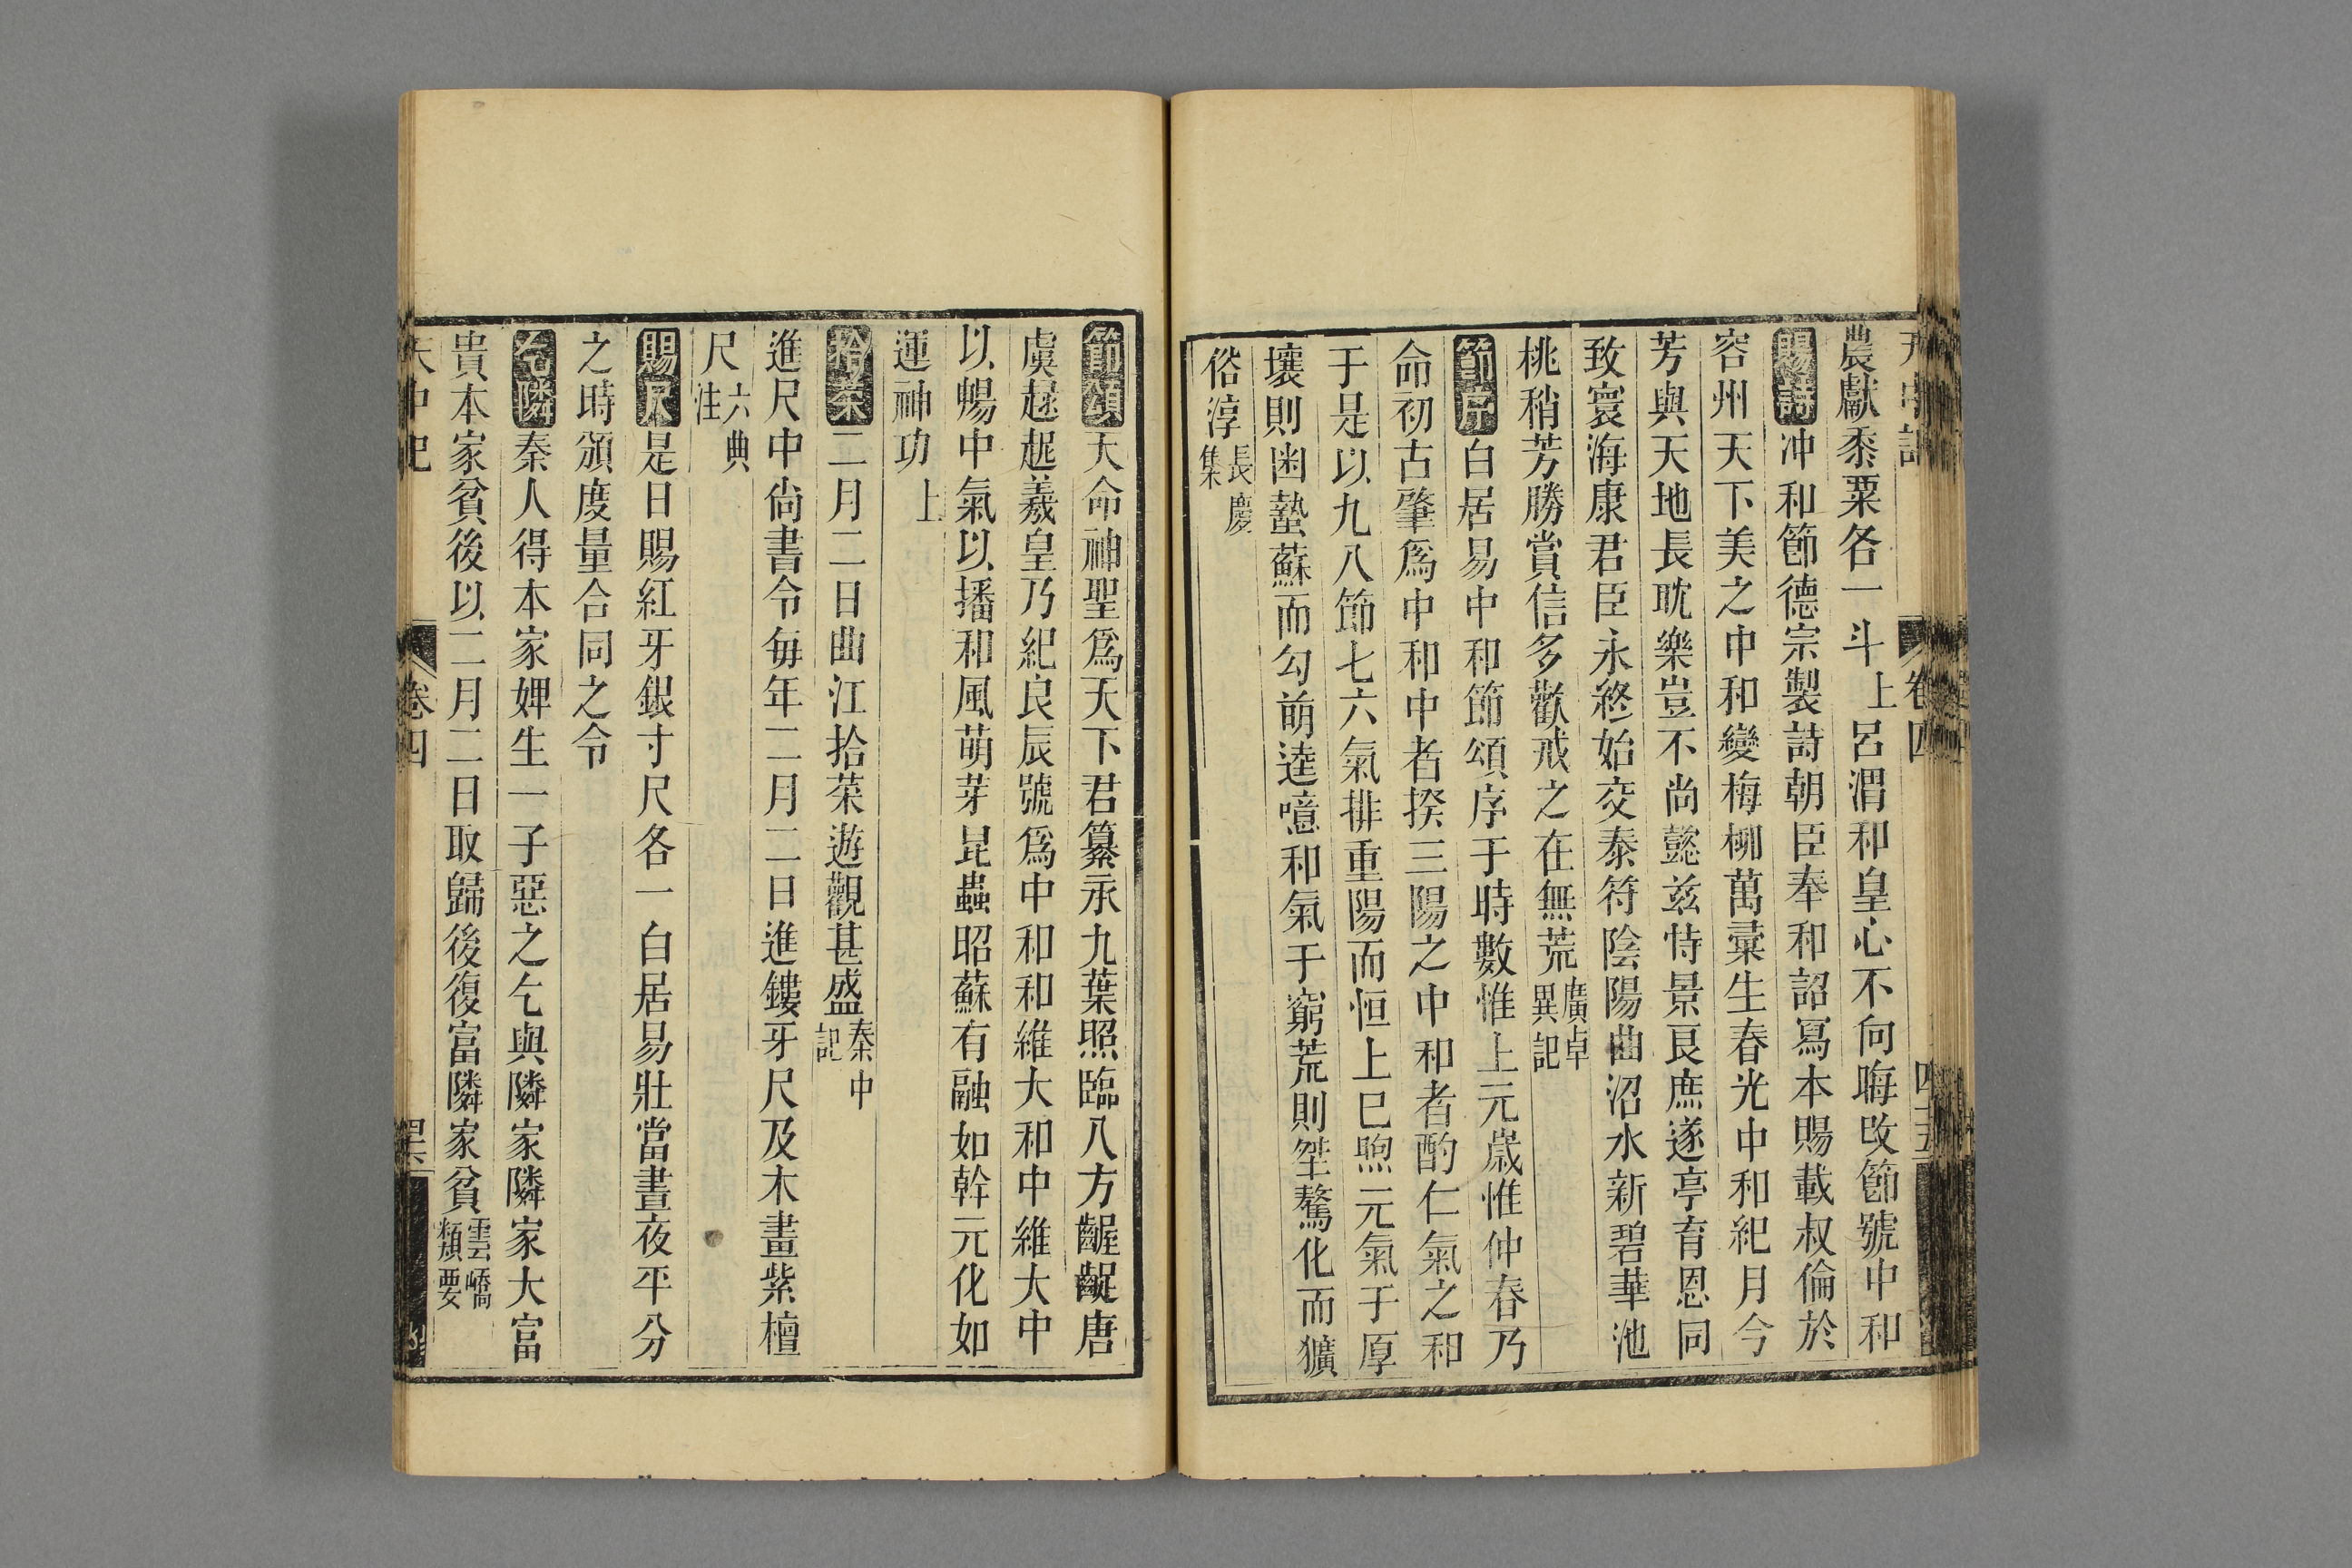 天中記 卷四 四十五
農獻黍粟各一斗上 呂渭和皇心不向晦改節號中和
賜詩 冲和節德宗製詩朝臣奉和詔寫本賜載叔倫於
容州天下美之中和變梅柳萬彚生春光中和紀月令
芳與天地長耽樂豈不尚懿兹恃景良庶遂亭育恩同
致寰海康君臣永終始交泰符陰陽曲沼水新碧華池
桃稍芳勝賞信多歡戒之在無荒廣卓異記
節序 白居易中和節頌序于時數惟上元歲惟仲春乃
命初古肇爲中和中者揆三陽之中和者酌仁氣之和
于是以九八節七六氣排重陽而恒上巳煦元氣于厚
壤則幽蟄蘇而勾萌達噫和氣于窮荒則桀驁化而獷
俗淳長慶集
節頌 天命神聖爲天下君纂承九葉照臨八方齷齪唐
虞趢趗羲皇乃紀良辰號爲中和和維大和中維大中
以暢中氣以播和風萌芽昆蟲昭蘇有融如幹元化如
運神功上
拾菜 二月二日曲江拾菜遊觀甚盛秦中記
進尺中尚書令每年二月二日進鏤牙尺及木畫紫檀
尺六典注
賜尺 是日賜紅牙銀寸尺各一白居易壯當晝夜平分
之時頒度量合同之令
乞隣 秦人得本家婢生一子惡之乞與隣家隣家大富
貴本家貧後以二月二日取歸後復富隣家貧雲嶠類要
天中記 卷四